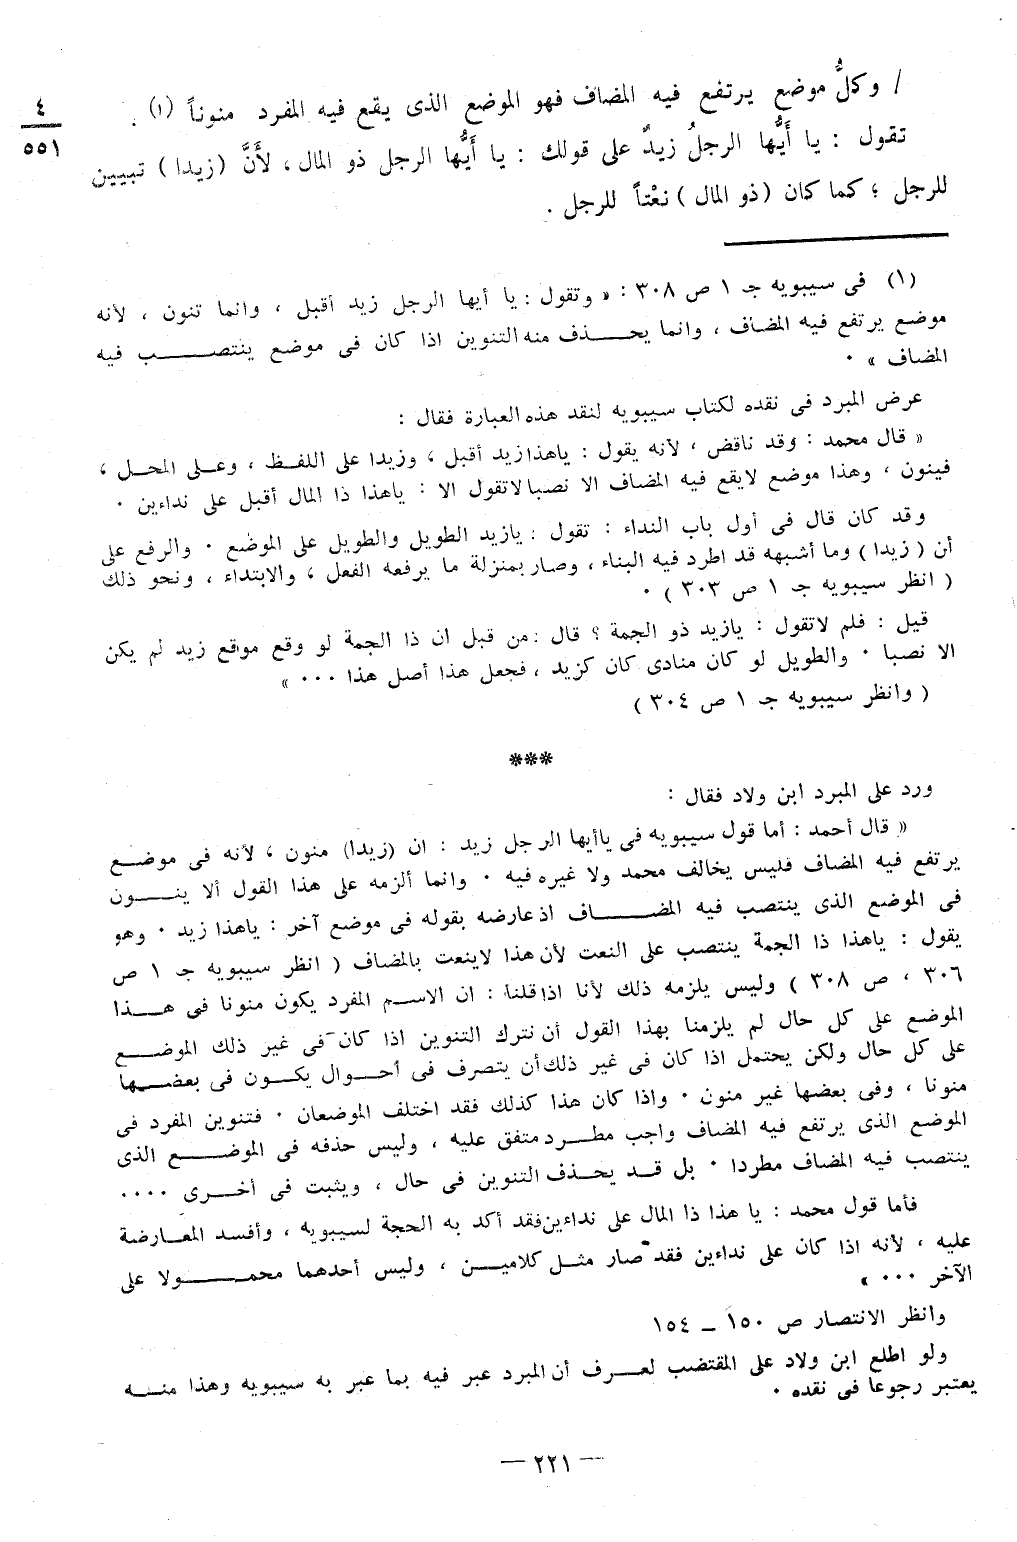 / وكلُّ موضع يرتفع فيه المضاف فهو الموضع الذى يقع فيه المفرد منوناً (١) .
٤
٥٥١
تقول : يا أَيُّها الرجلُ زيدٌ على قولك : يا أَيُّها الرجل ذو المال ، لأَنَّ (زيدا) تبيين
للرجل ؛ كما كان (ذو المال) نعْتاً للرجل .
(١) فى سيبويه جـ ١ ص ٣٠٨ : « وتقول : يا أيها الرجل زيد أقبل ، وانما تنون ، لأنه
موضع يرتفع فيه المضاف ، وانما يحذف منه التنوين اذا كان فى موضع ينتصب فيه
المضاف » ٠
عرض المبرد فى نقده لكتاب سيبويه لنقد هذه العبارة فقال :
« قال محمد : وقد ناقض ، لأنه يقول : ياهذا زيد أقبل ، وزيدا على اللفظ ، وعلى المحل ،
فينون ، وهذا موضع لايقع فيه المضاف الا نصبا لاتقول الا : ياهذا ذا المال أقبل على نداءين ٠
وقد كان قال فى أول باب النداء : تقول : يازيد الطويل والطويل على الموضع ٠ والرفع على
أن (زيدا) وما أشبهه قد اطرد فيه البناء ، وصار بمنزلة ما يرفعه الفعل ، والابتداء ، ونحو ذلك
( انظر سيبويه جـ ١ ص ٣٠٣ ) ٠
قيل : فلم لاتقول : يازيد ذو الجمة ؟ قال : من قبل ان ذا الجمة لو وقع مواقع زيد لم يكن
الا نصبا ٠ والطويل لو كان منادى كان كزيد ، فجعل هذا أصل هذا ٠٠٠ »
( وانظر سيبويه جـ ١ ص ٣٠٤ )
***
ورد على المبرد ابن ولاد فقال :
« قال أحمد : أما قول سيبويه فى ياأيها الرجل زيد : ان (زيدا) منون ، لأنه فى موضع
يرتفع فيه المضاف فليس يخالف محمد ولا غيره فيه ٠ وانما ألزمه على هذا القول ألا ينون
فى الموضع الذى ينتصب فيه المضاف اذ عارضه بقوله فى موضع آخر : ياهذا زيد ٠ وهو
يقول : ياهذا ذا الجمة ينتصب على النعت لأن هذا لاينعت بالمضاف ( انظر سيبويه جـ ١ ص
٣٠٦ ، ص ٣٠٨ ) وليس يلزمه ذلك لأنا اذا قلنا : ان الاسم المفرد يكون منونا فى هذا
الموضع على كل حال لم يلزمنا بهذا القول أن نترك التنوين اذا كان فى غير ذلك الموضع
على كل حال ولكن يحتمل اذا كان فى غير ذلك أن يتصرف فى أحوال يكون فى بعضها
منونا ، وفى بعضها غير منون ٠ واذا كان هذا كذلك فقد اختلف الموضعان ٠ فتنوين المفرد فى
الموضع الذى يرتفع فيه المضاف واجب مطرد متفق عليه ، وليس حذفه فى الموضع الذى
ينتصب فيه المضاف مطردا ٠ بل قد يحذف التنوين فى حال ، ويثبت فى أخرى ٠٠٠٠
فأما قول محمد : يا هذا ذا المال على نداءين فقد أكد به الحجة لسيبويه ، وأفسد المعارضة
عليه ، لأنه اذا كان على نداءين فقد صار مثل كلامين ، وليس أحدهما محمولا على
الآخر ٠٠٠ »
وانظر الانتصار ص ١٥٠ – ١٥٤
ولو اطلع ابن ولاد على المقتضب لعرف أن المبرد عبر فيه بما عبر به سيبويه وهذا منه
يعتبر رجوعا فى نقده ٠
— ٢٢١ —